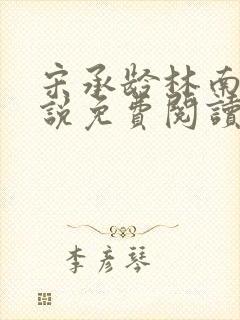 宋承龄林南
説免費閲讀
李彦琴